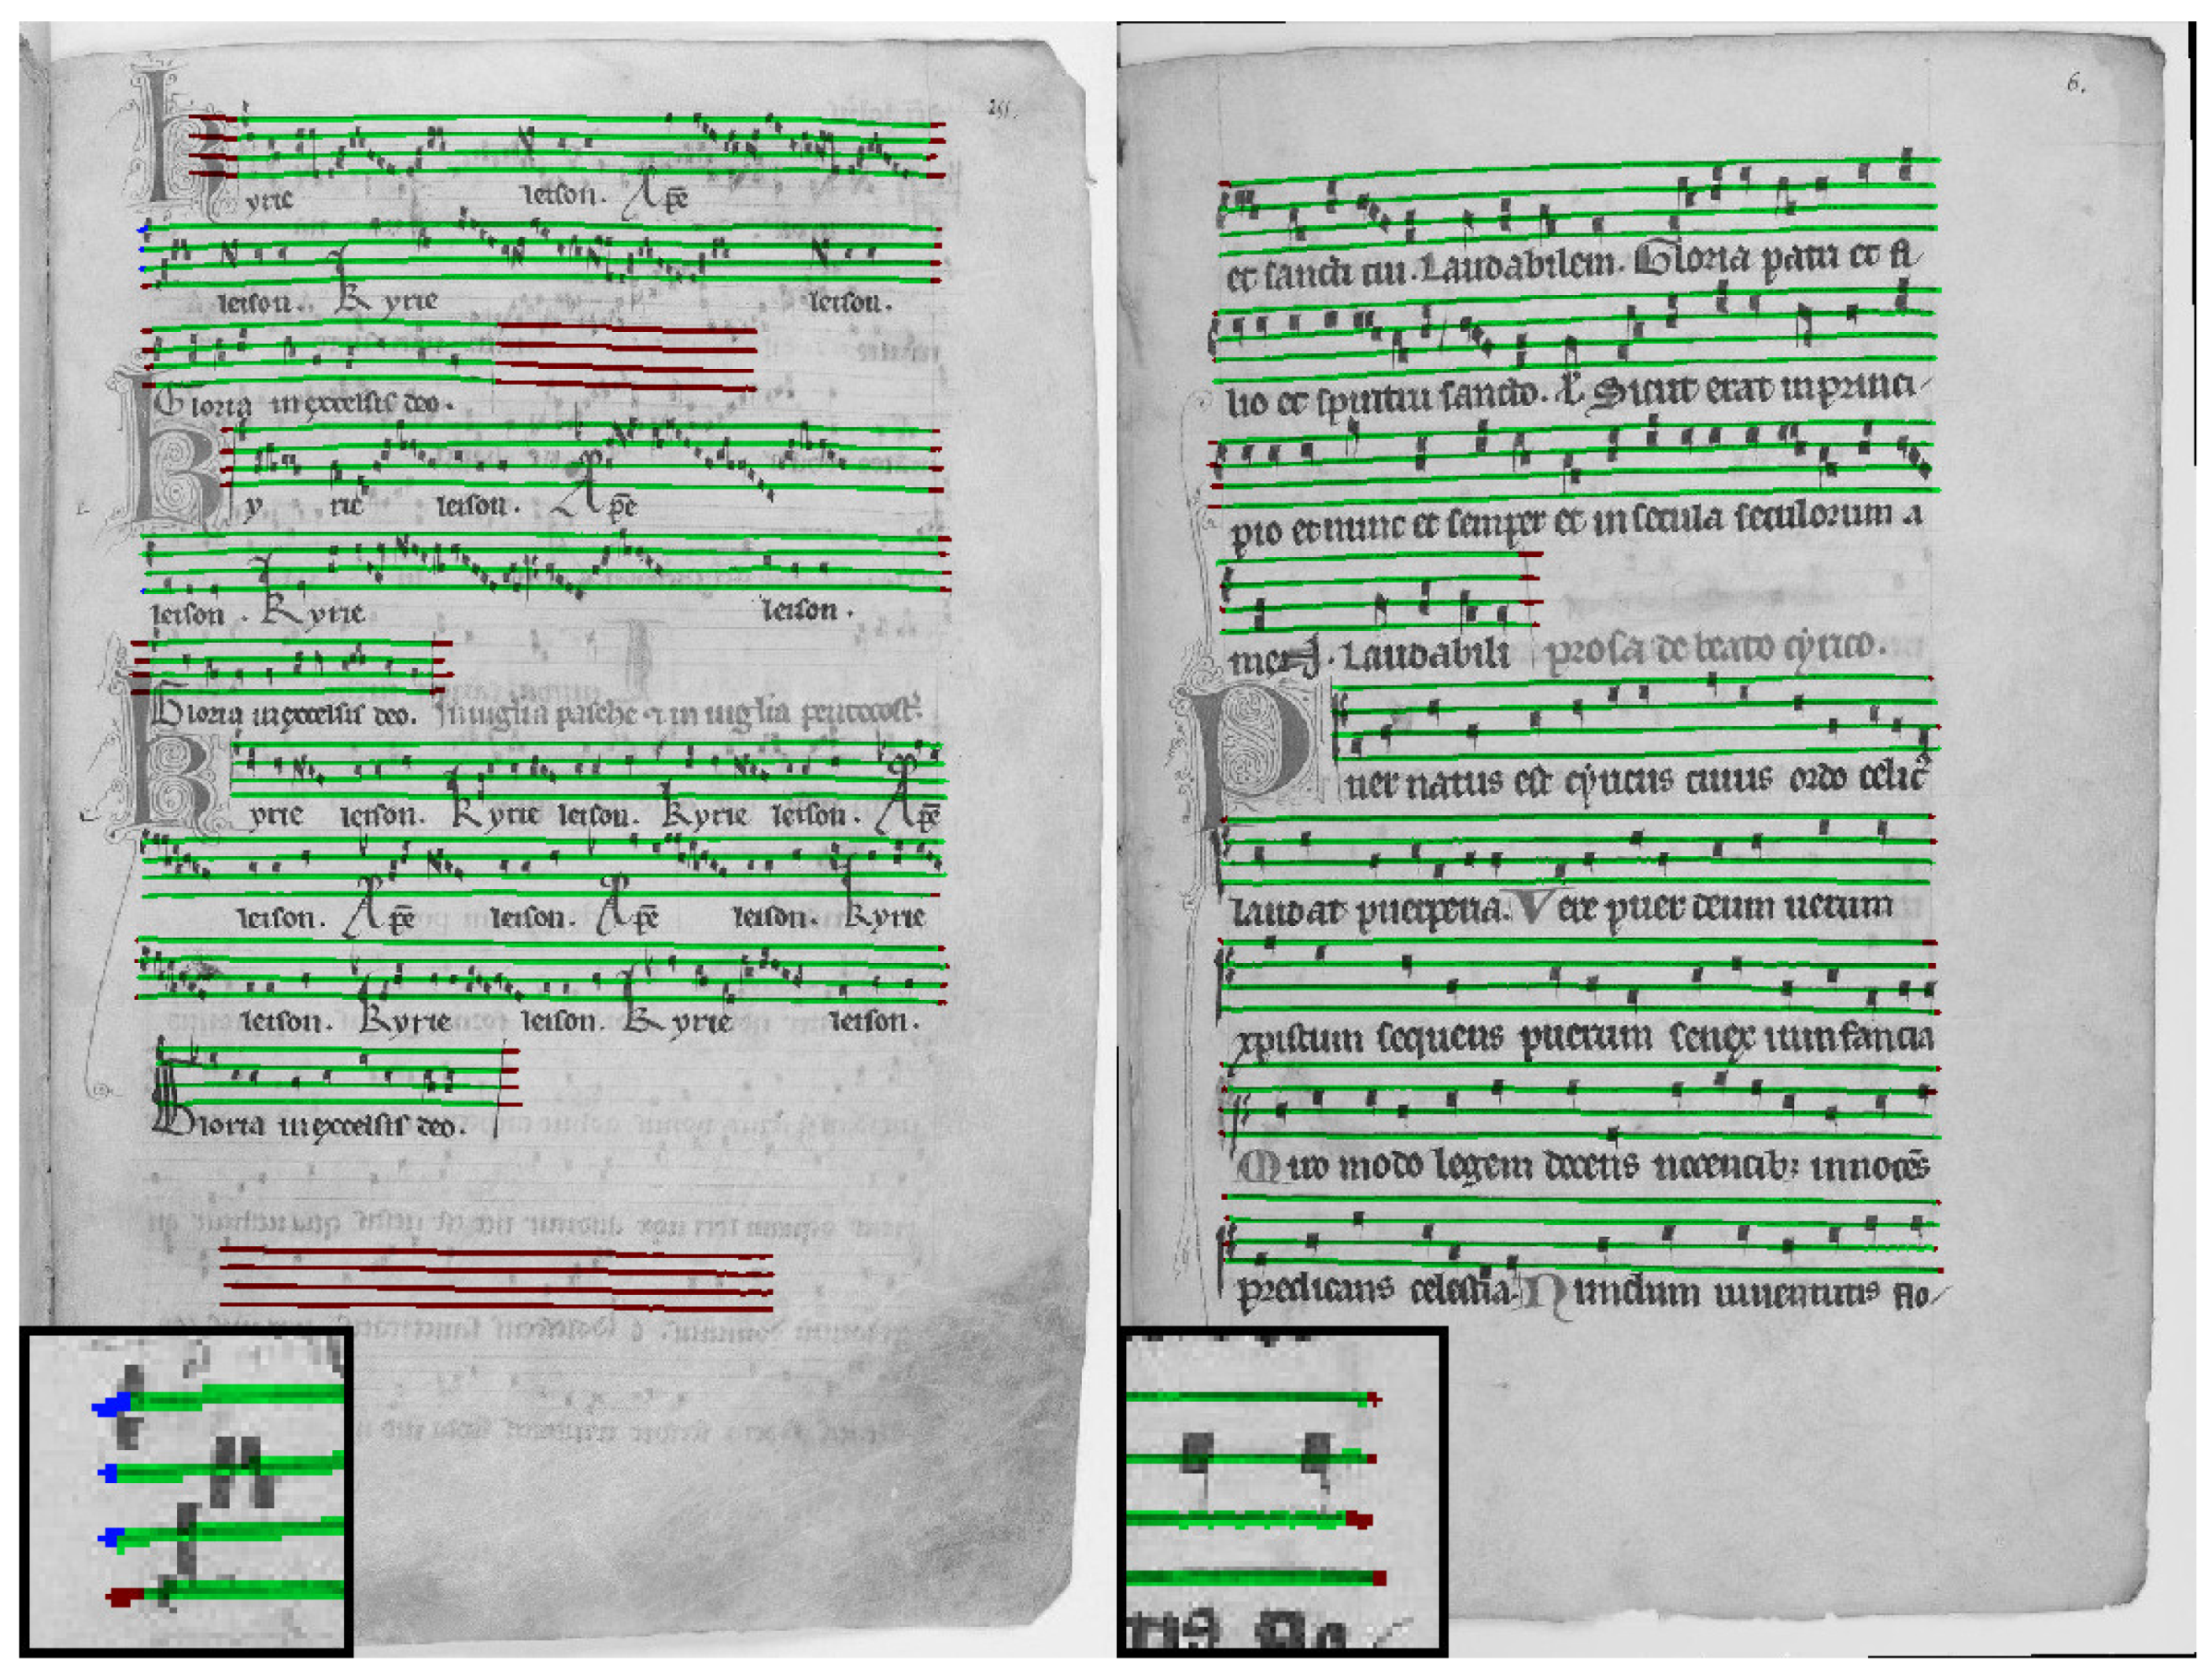 255.
kyrie leison. Xpē
leison. Kyrie leison.
Gloria in excelsis deo.
Ky rie leison. Xpē
leison. Kyrie leison.
Gloria in excelsis deo. In uigilia pasche & in uigilia pentecost.
Kyrie leison. Kyrie leison. Kyrie leison. Xpē
leison. Xpē leison. Xpē leison. Kyrie
leison. Kyrie leison. Kyrie leison.
Gloria in excelsis deo.
6.
et sancti tui. Laudabilem. Gloria patri et fi
lio et spiritui sancto. Sicut erat in princi
pio et nunc et semper et in secula seculorum a
men. Laudabili prosa de beato cyrico.
Puer natus est cyricus cuius ordo celic9
laudat puerperia. Vere puer deum uerum
xpistum sequens puerum senex in infancia
Quo modo legem docens nocencib; innocēs
predicans celestia. Nundum iuuentutis flo